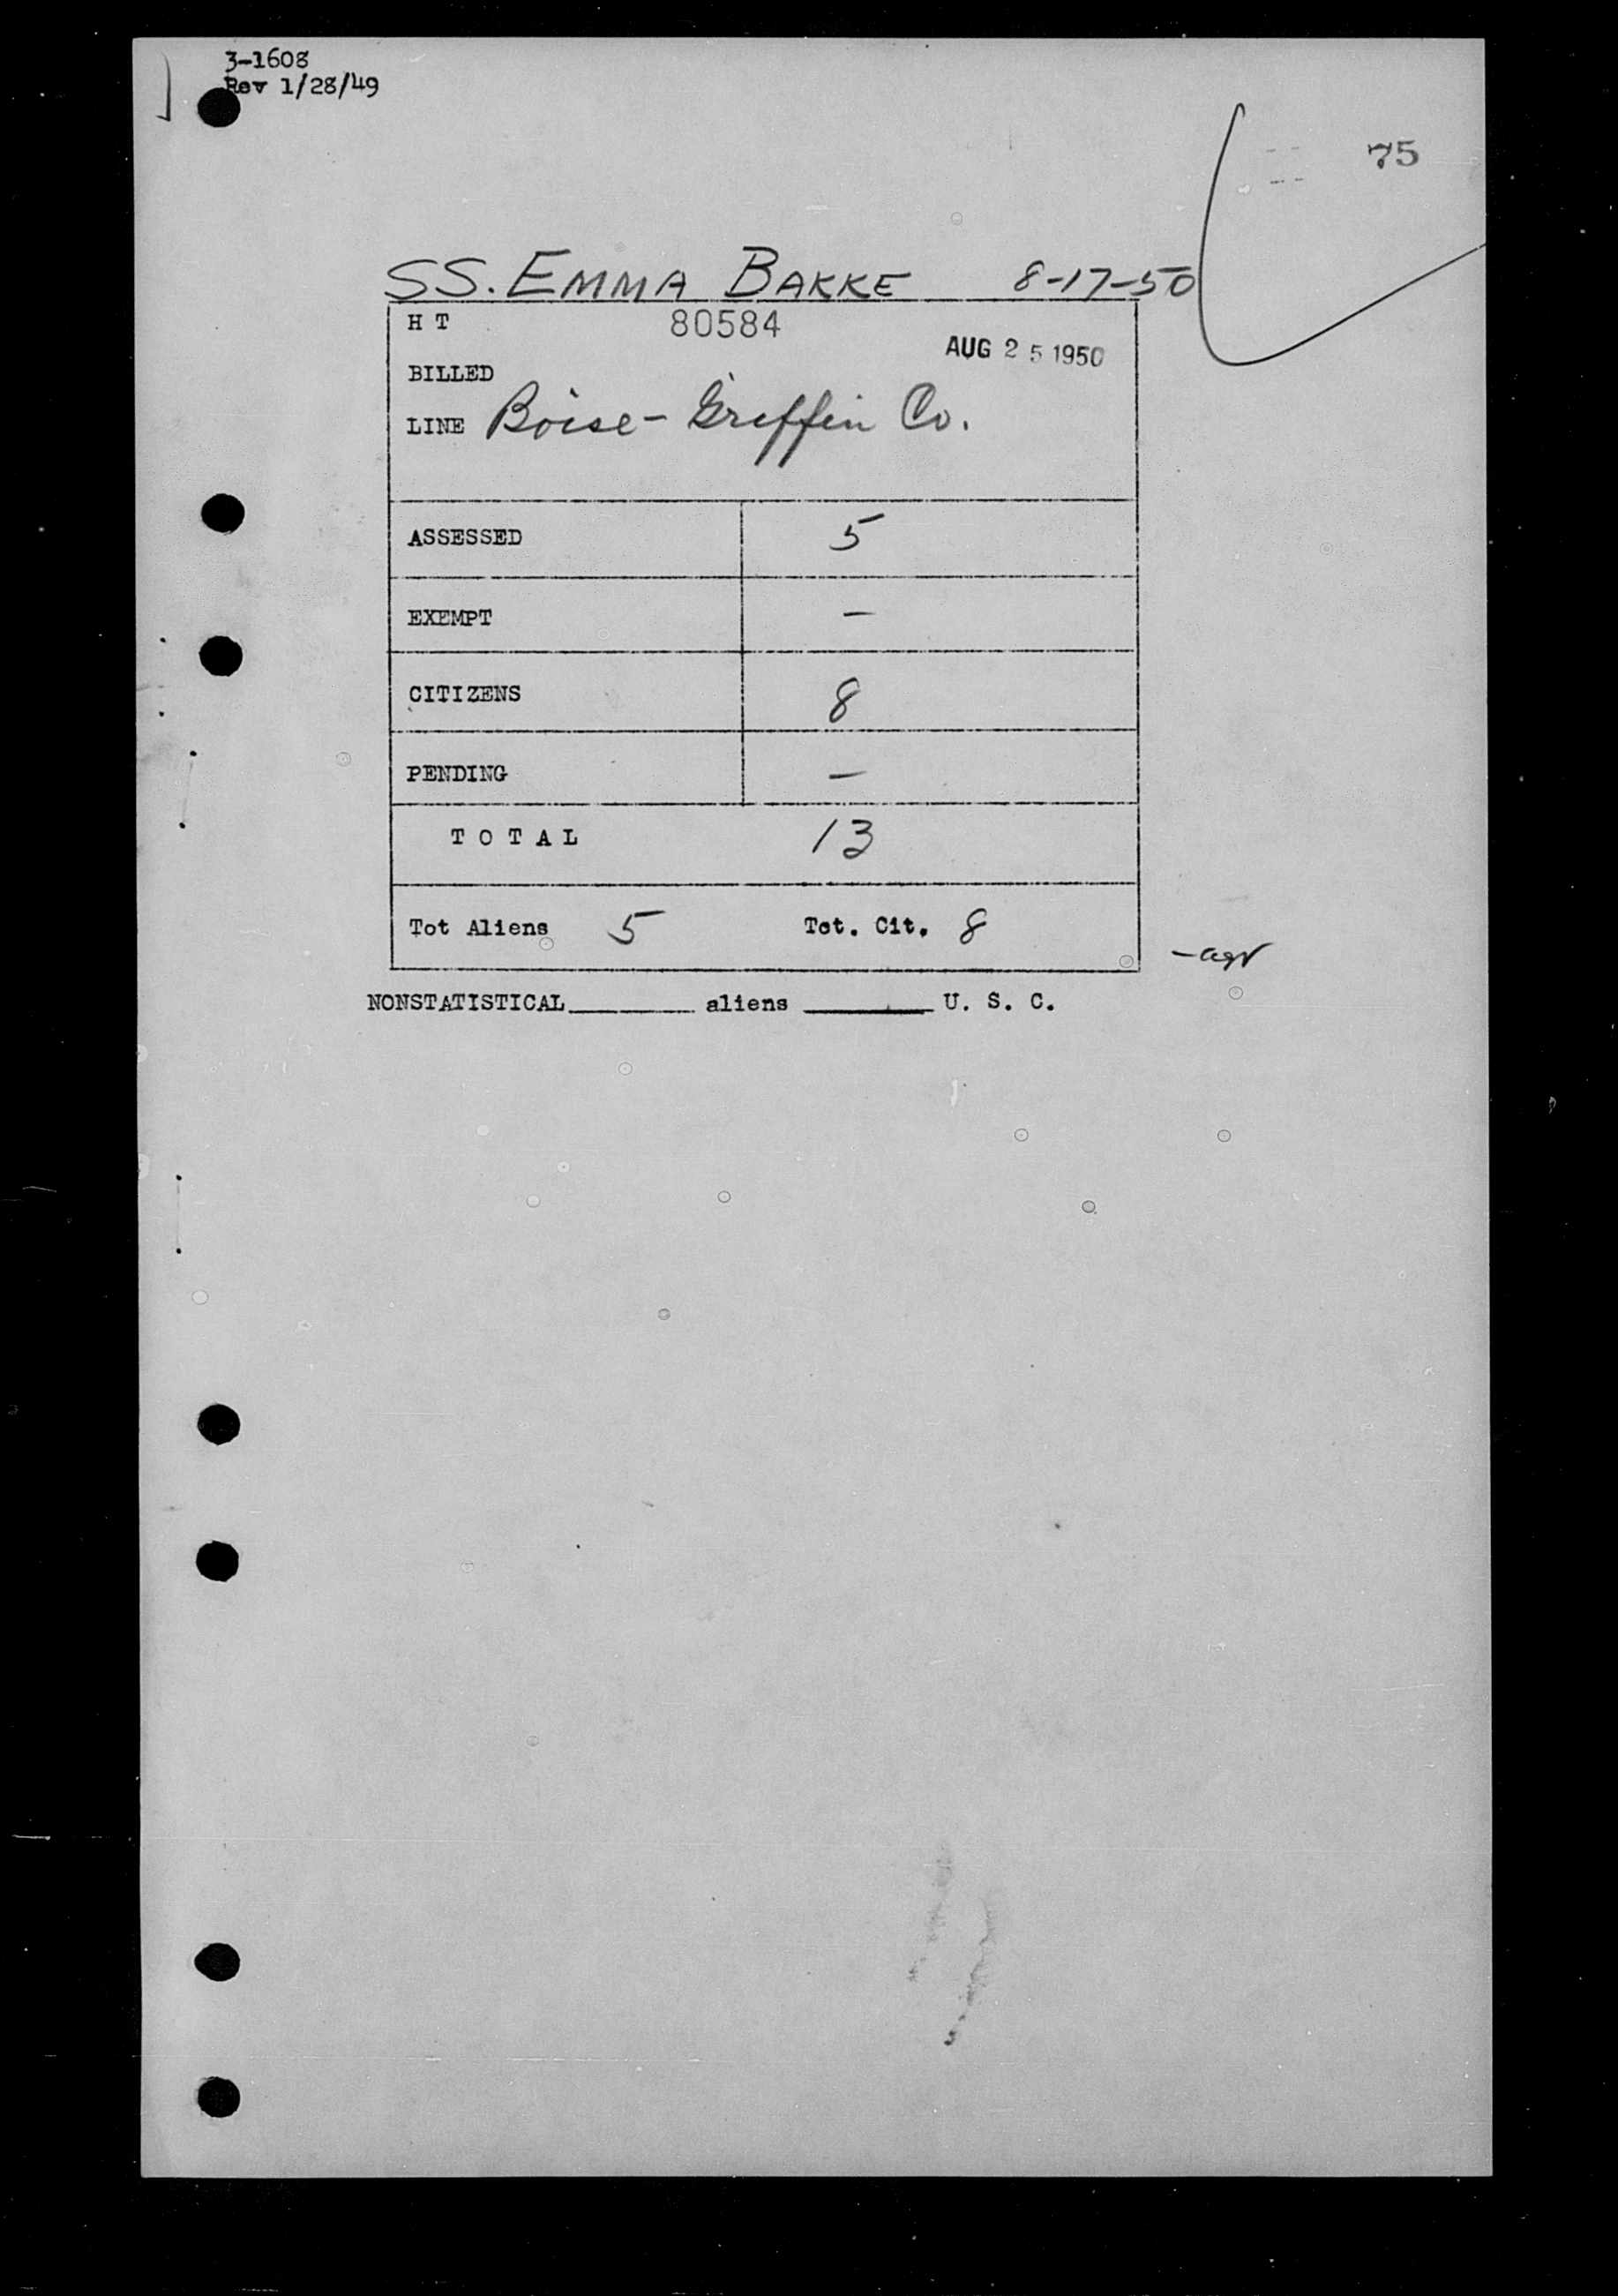 3-1608
Rev 1/28/49
75
SS. EMMA BAKKE 8-17-50
H T 80584
AUG 25 1950
BILLED
LINE Boise-Griffin Co.
ASSESSED 5
EXEMPT —
CITIZENS 8
PENDING —
T O T A L 13
Tot Aliens 5 Tot. Cit. 8
NONSTATISTICAL______ aliens ______ U. S. C.